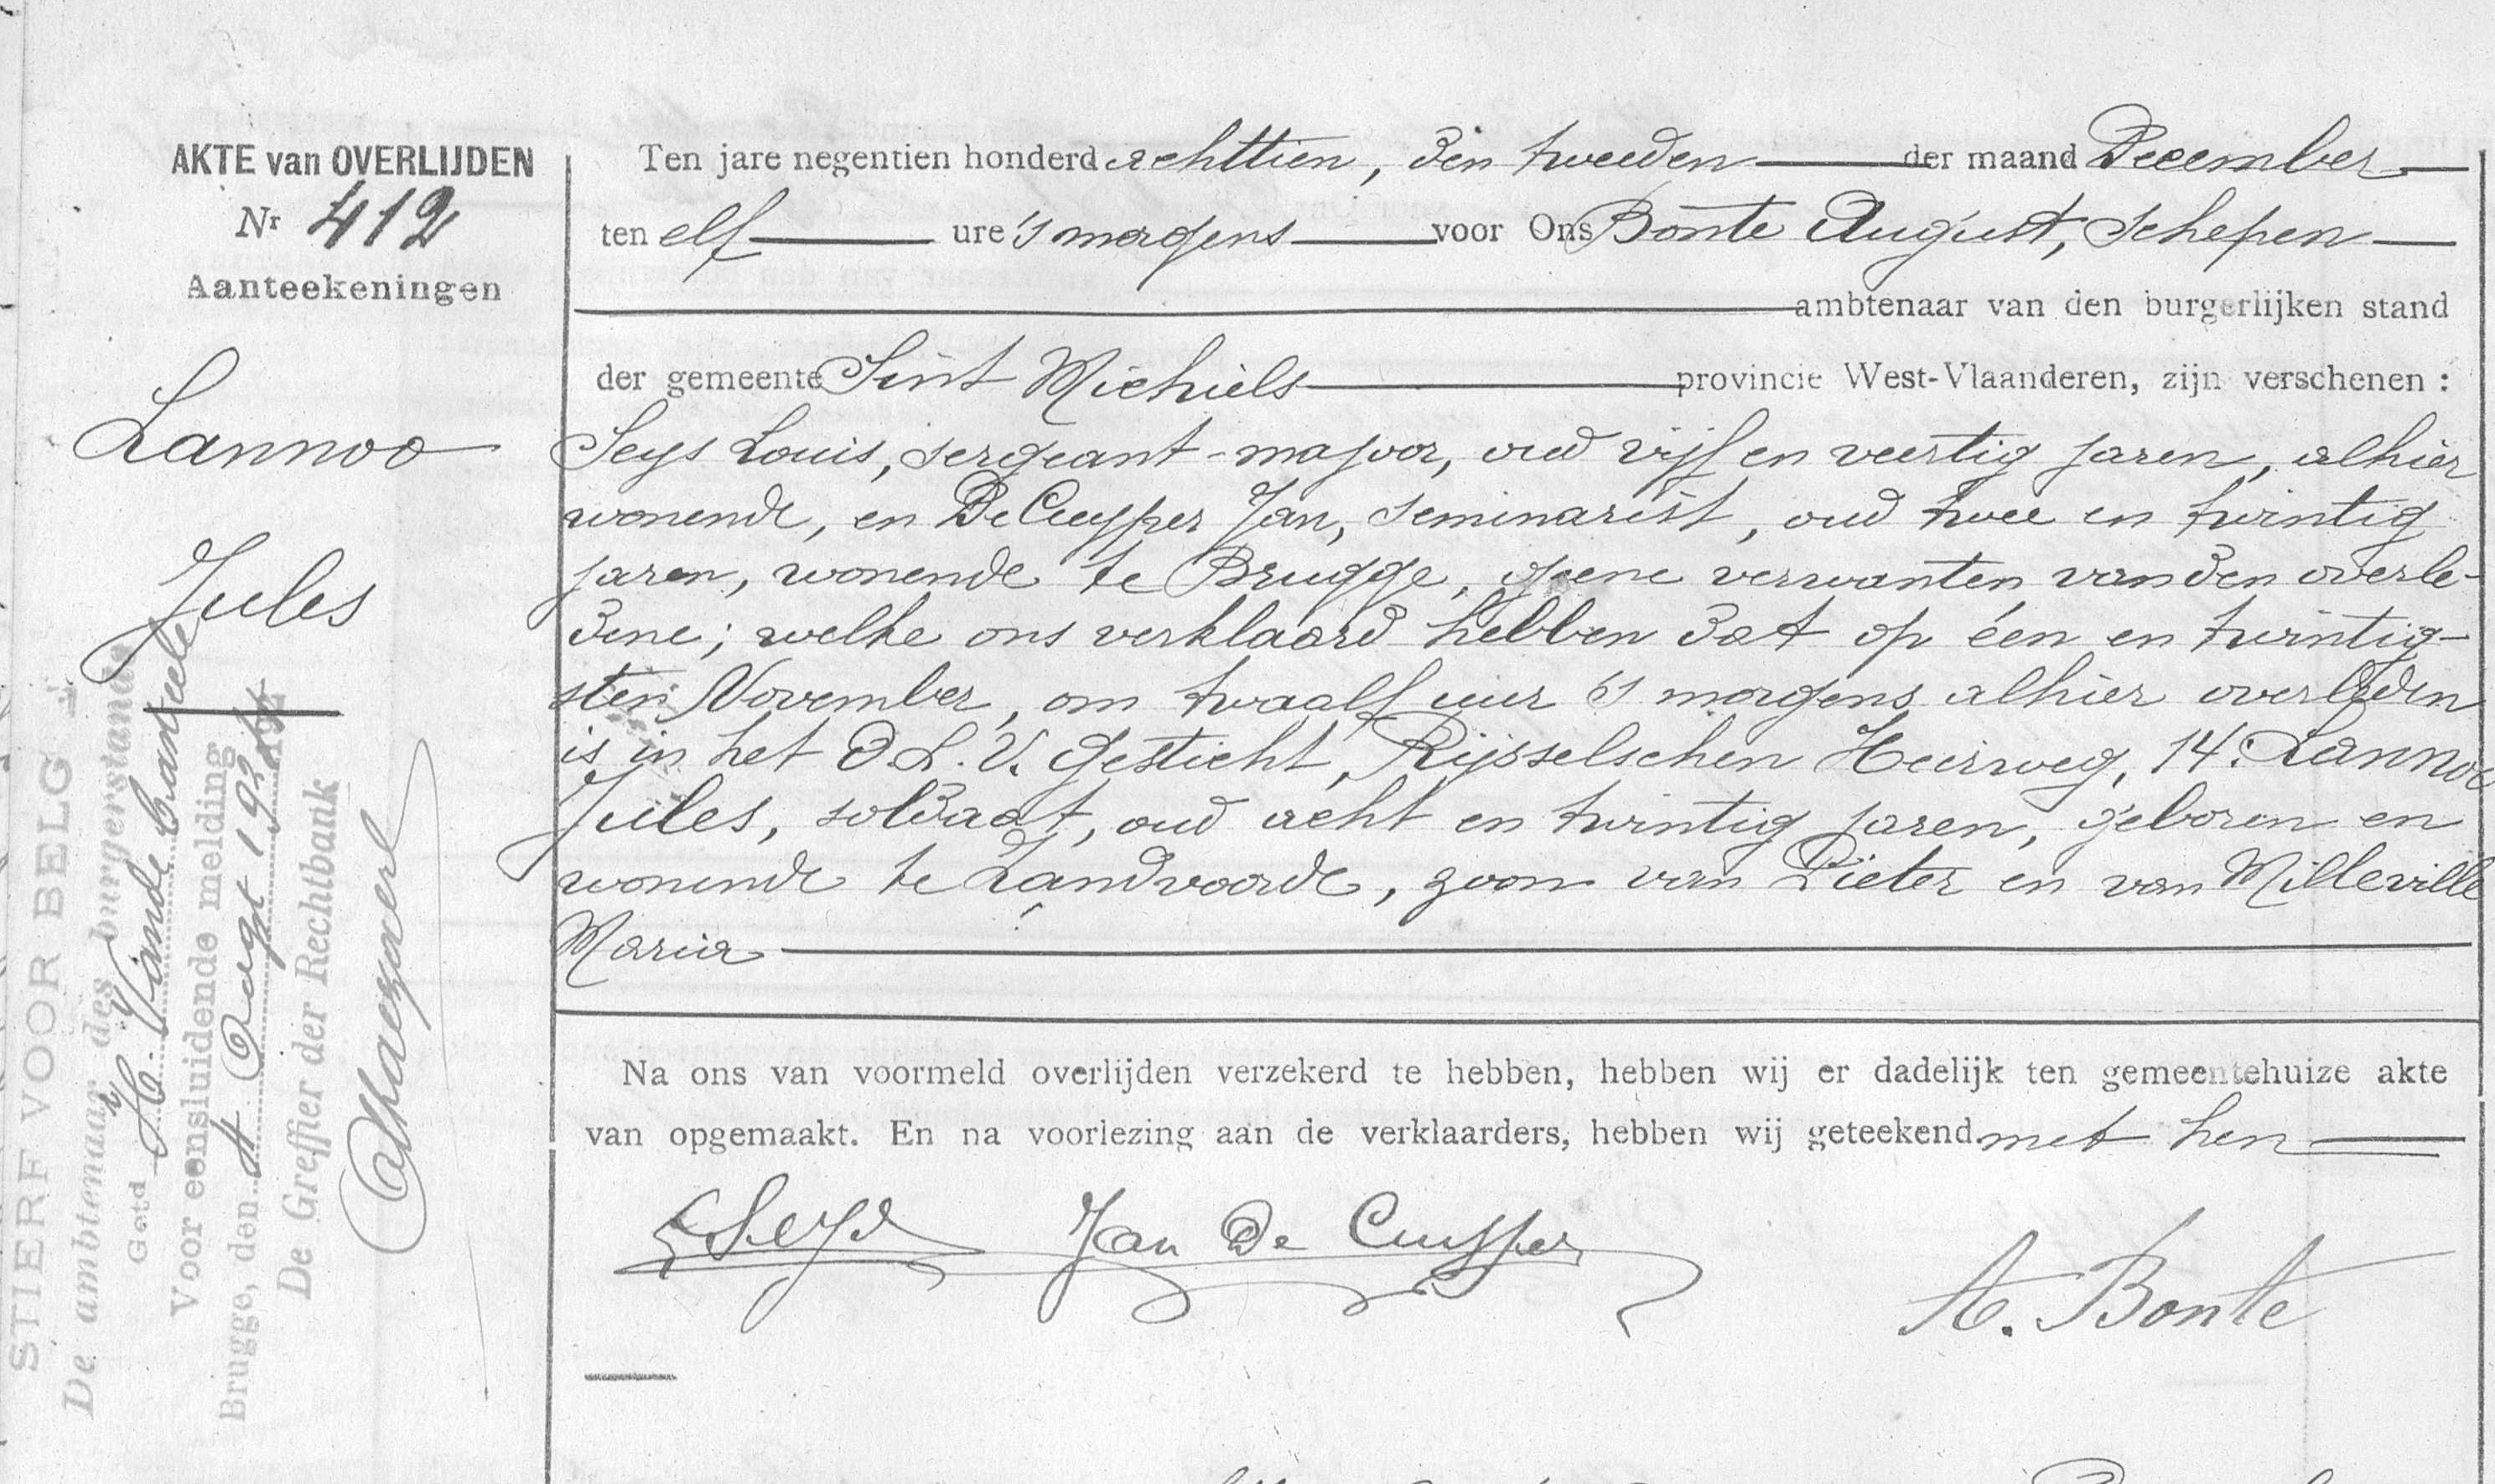 AKTE van OVERLIJDEN
Nr 412
Aanteekeningen
Lannoo
Jules
STIERF VOOR BELG
De ambtenaar des burgerstands
Getd H. Vande
Voor eensluidende melding
Brugge, den 4 Augt 192
De Greffier der Rechtbank
Ten jare negentien honderd achttien, den tweeden der maand December
ten elf ure 's morgens voor Ons Bonte August, Schepen
ambtenaar van den burgerlijken stand
der gemeente Sint Michiels provincie West-Vlaanderen, zijn verschenen :
Seys Louis, sergeant-majoor, oud vijf en veertig jaren, alhier
wonende, en De Cuyper Jan, seminarist, oud twee en twintig
jaren, wonende te Brugge, geene verwanten van den overle-
dene; welke ons verklaard hebben dat op één en twintig-
sten November, om twaalf uur 's morgens alhier overleden
is in het O.L.V. Gesticht, Rijsselschen Heirweg, 14: Lannoo
Jules, soldaat, oud acht en twintig jaren, geboren en
wonende te Zandvoorde, zoon van Pieter en van Milleville
Maria
Na ons van voormeld overlijden verzekerd te hebben, hebben wij er dadelijk ten gemeentehuize akte
van opgemaakt. En na voorlezing aan de verklaarders, hebben wij geteekend met hen
L Seys Jan De Cuyper
A. Bonte